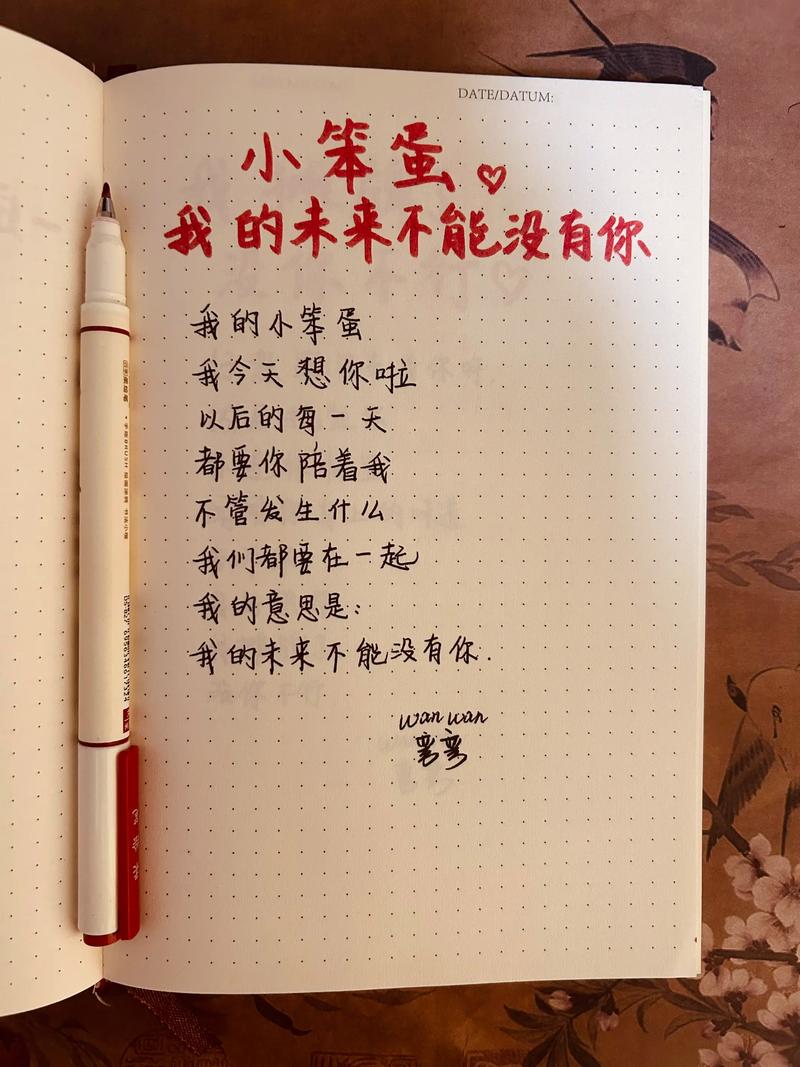 DATE/DATUM:
小笨蛋♡
我的未来不能没有你
我的小笨蛋
我今天想你啦
以后的每一天
都要你陪着我
不管发生什么
我们都要在一起
我的意思是:
我的未来不能没有你.
wan wan
弯弯